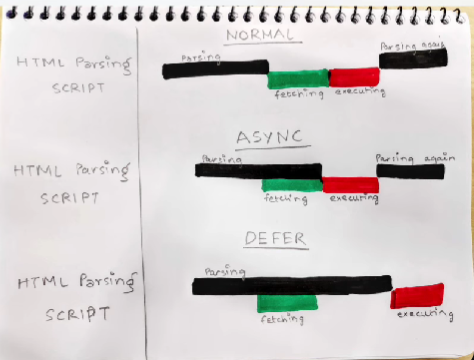 NORMAL
HTML Parsing
SCRIPT
Parsing
Parsing again
fetching
executing
ASYNC
HTML Parsing
SCRIPT
Parsing
Parsing again
fetching
executing
DEFER
HTML Parsing
SCRIPT
Parsing
fetching
executing